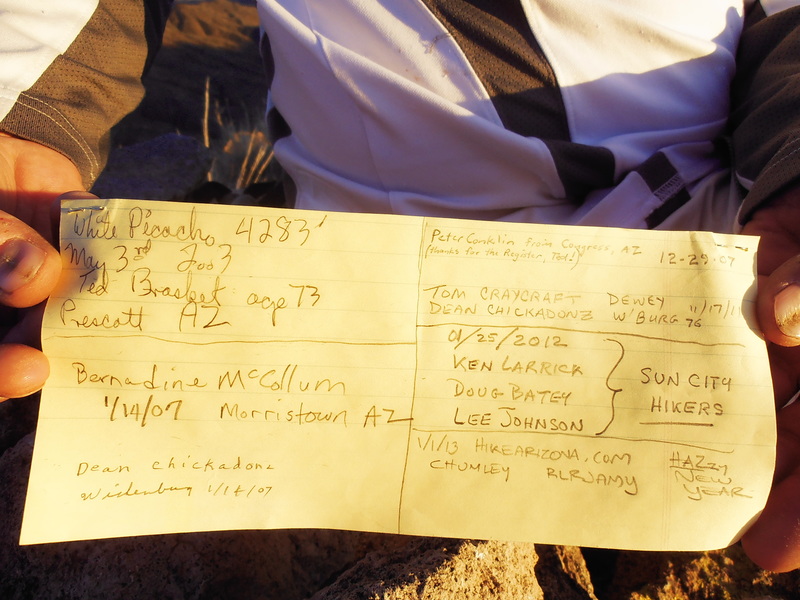 White Picacho 4283'
May 3rd 2003
Ted Brasket age 73
Prescott AZ
Bernadine McCollum
1/14/07 Morristown AZ
Dean Chickadonz
1/14/07
Peter Conklin from Congress, AZ
(thanks for the Register, Ted!) 12-29-07
TOM CRAYCRAFT DEWEY
DEAN CHICKADONZ W'BURG 76
01/25/2012
KEN LARRICK
DOUG BATEY
LEE JOHNSON
SUN CITY
HIKERS
1/1/13 HIKEARIZONA.COM
CHUMLEY RLRJAMY
HAZzy
NEW
YEAR